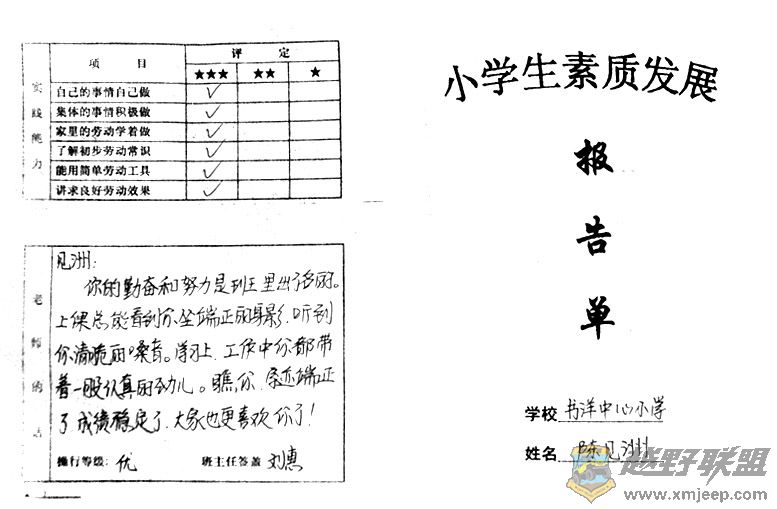 项 目 评 定
★★★ ★★ ★
实践能力
自己的事情自己做 ✓
集体的事情积极做 ✓
家里的劳动学着做 ✓
了解初步劳动常识 ✓
能用简单劳动工具 ✓
讲求良好劳动效果 ✓
老师的话
见洲：
你的勤奋和努力是班里出了名的。
上课总能看到你坐端正的身影，听到
你清脆的嗓音。学习上、工作中你都带
着一股认真的劲儿。瞧你，字迹端正
了，成绩稳定了，大家也更喜欢你了！
操行等级：优 班主任签盖 刘惠
小学生素质发展
报
告
单
学校 书洋中心小学
姓名 陈见洲
越野联盟
www.xmjeep.com